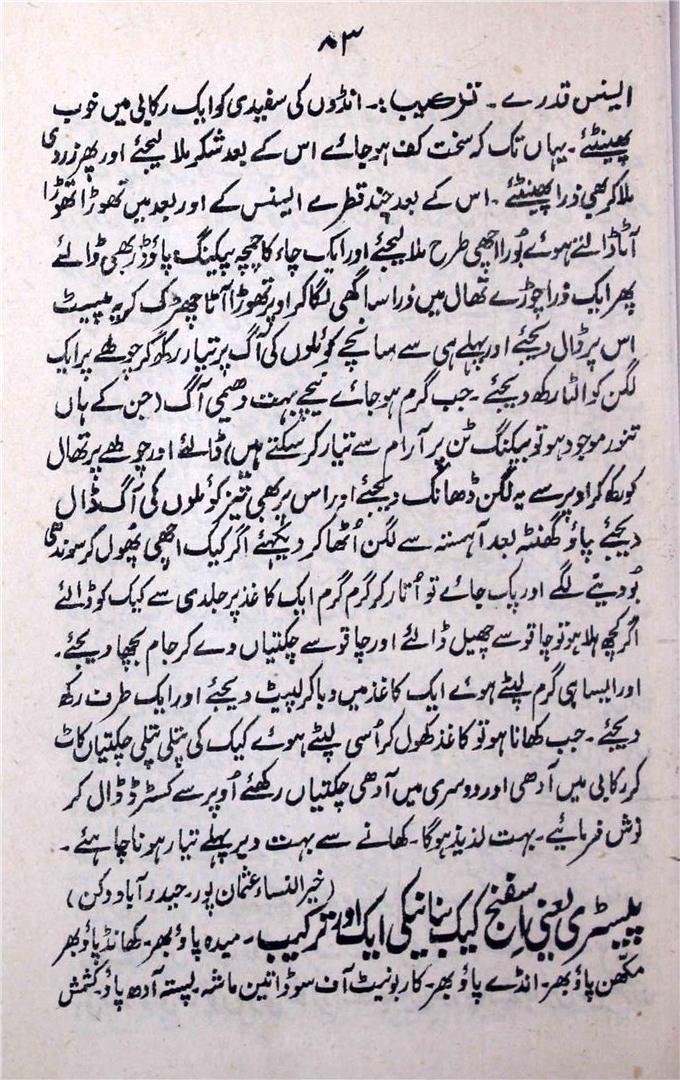 ۸۳
ایسنس قدرے ۔ ترکیب :۔ انڈوں کی سفیدی کو ایک رکابی میں خوب
پھینٹئے ۔ یہاں تک کہ سخت کف ہو جائے اس کے بعد شکر ملا لیجئے اور پھر زردی
ملا کر بھی ذرا پھینٹئے ۔ اس کے بعد چند قطرے ایسنس کے اور بعد میں تھوڑا تھوڑا
آٹا ڈالتے ہوئے پورا اچھی طرح ملا لیجئے اور ایک چاء کا چمچہ بیکنگ پاؤڈر بھی ڈالئے
پھر ایک ذرا چوڑے تھال میں ذرا سا گھی لگا کر اوپر تھوڑا آٹا چھڑک کر یہ پیسٹ
اس پر ڈال دیجئے اور پہلے ہی سے سانچے کوئلوں کی آگ پر تیار رکھ کر چولھے پر ایک
لگن کو الٹا رکھ دیجئے ۔ جب گرم ہو جائے نیچے بہت دھیمی آگ (جن کے ہاں
تنور موجود ہو تو بیکنگ ٹن پر آرام سے تیار کر سکتے ہیں) ڈالئے اور چولھے پر تھال
کو رکھ کر اوپر سے یہ لگن ڈھانک دیجئے اور اس پر بھی تیز کوئلوں کی آگ ڈال
دیجئے پاؤ گھنٹہ بعد آہستہ سے لگن اُٹھا کر دیکھئے اگر کیک اچھی پھول کر سوندھی
بُو دینے لگے اور پک جائے تو اُتار کر گرم گرم ایک کاغذ پر جلدی سے کیک کو ڈالئے
اگر کچھ ہلا ہو تو چاقو سے چھیل ڈالئے اور چاقو سے چکتیاں دے کر جام بچھا دیجئے ۔
اور ایسا ہی گرم لپٹے ہوئے ایک کاغذ میں دبا کر لپیٹ دیجئے اور ایک طرف رکھ
دیجئے ۔ جب کھانا ہو تو کاغذ کھول کر اُسی لپٹے ہوئے کیک کی پتلی پتلی چکتیاں کاٹ
کر رکابی میں آدھی اور دوسری میں آدھی چکتیاں رکھئے اُوپر سے کسٹرڈ ڈال کر
نوش فرمائیے ۔ بہت لذیذ ہوگا ۔ کھانے سے بہت دیر پہلے تیار ہونا چاہئے ۔
(خیر النساء عثمان پور ۔ حیدر آباد دکن)
پیسٹری یعنی اسفنج کیک بنانیکی ایک اور ترکیب ۔ میدہ پاؤ بھر ۔ کھانڈ پاؤ بھر
مکھن پاؤ بھر ۔ انڈے پاؤ بھر ۔ کاربونیٹ آف سوڈا تین ماشہ ۔ پستہ آدھ پاؤ ۔ کشمش